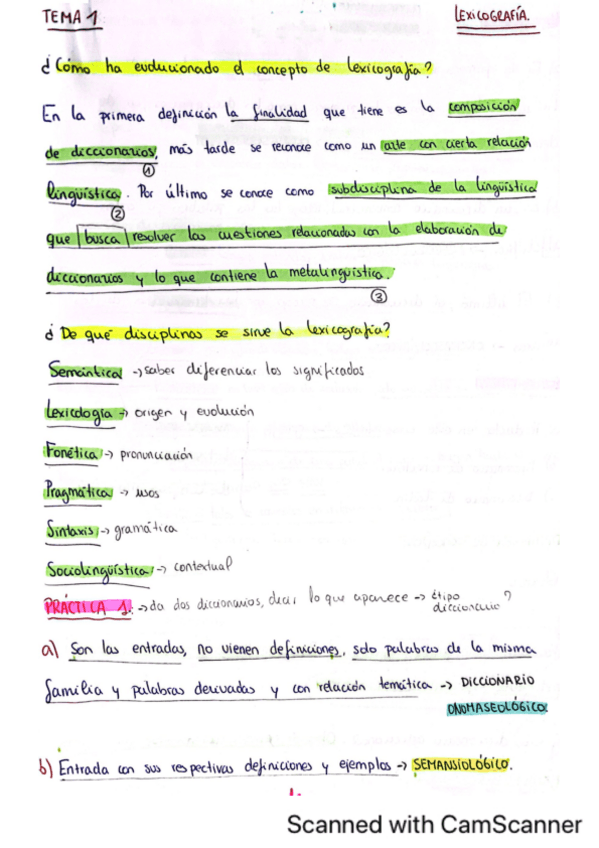 TEMA 1
LEXICOGRAFÍA.
¿Cómo ha evolucionado el concepto de lexicografía?
En la primera definición la finalidad que tiene es la composición
de diccionarios, más tarde se reconoce como un arte con cierta relación
①
lingüística. Por último se conoce como subdisciplina de la lingüística
②
que busca resolver las cuestiones relacionadas con la elaboración de
diccionarios y lo que contiene la metalingüística.
③
¿De qué disciplinas se sirve la lexicografía?
Semántica -> saber diferenciar los significados
Lexicología -> origen y evolución
Fonética -> pronunciación
Pragmática -> usos
Sintaxis -> gramática
Sociolingüística -> contextual
PRÁCTICA 1: -> da dos diccionarios, decir lo que aparece -> ¿tipo
diccionario?
a) Son las entradas, no vienen definiciones, solo palabras de la misma
familia y palabras derivadas y con relación temática -> DICCIONARIO
ONOMASEOLÓGICO.
b) Entrada con sus respectivas definiciones y ejemplos -> SEMANSIOLÓGICO.
1.
Scanned with CamScanner